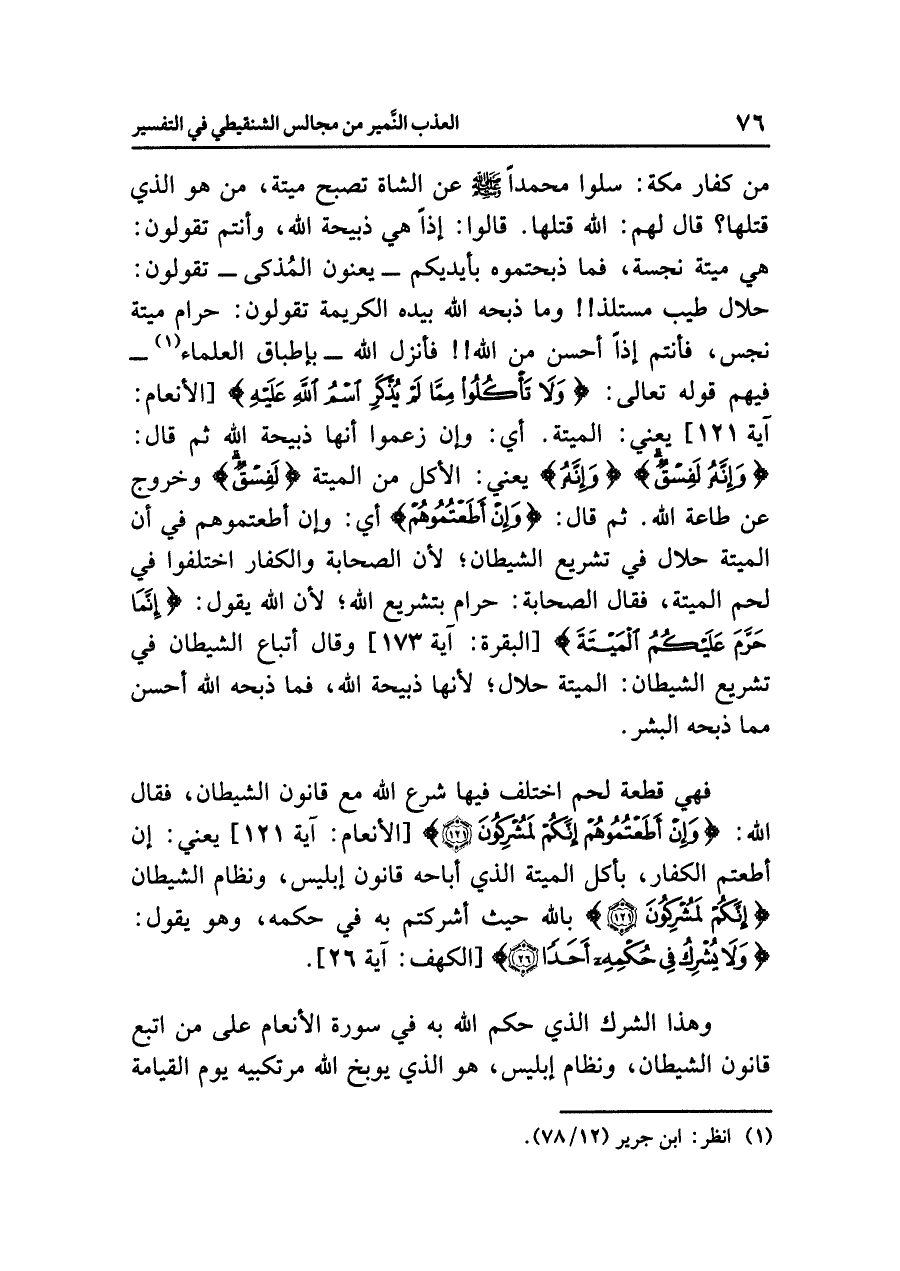 ٧٦ العذب النَّمير من مجالس الشنقيطي في التفسير
من كفار مكة: سلوا محمداً ﷺ عن الشاة تصبح ميتة، من هو الذي
قتلها؟ قال لهم: الله قتلها. قالوا: إذاً هي ذبيحة الله، وأنتم تقولون:
هي ميتة نجسة، فما ذبحتموه بأيديكم ــ يعنون المُذكى ــ تقولون:
حلال طيب مستلذ!! وما ذبحه الله بيده الكريمة تقولون: حرام ميتة
نجس، فأنتم إذاً أحسن من الله!! فأنزل الله ــ بإطباق العلماء(١) ــ
فيهم قوله تعالى: ﴿ وَلَا تَأْكُلُوا۟ مِمَّا لَمْ يُذْكَرِ ٱسْمُ ٱللَّهِ عَلَيْهِ ﴾ [الأنعام:
آية ١٢١] يعني: الميتة. أي: وإن زعموا أنها ذبيحة الله ثم قال:
﴿ وَإِنَّهُۥ لَفِسْقٌۗ ﴾ ﴿ وَإِنَّهُۥ ﴾ يعني: الأكل من الميتة ﴿ لَفِسْقٌۗ ﴾ وخروج
عن طاعة الله. ثم قال: ﴿ وَإِنْ أَطَعْتُمُوهُمْ ﴾ أي: وإن أطعتموهم في أن
الميتة حلال في تشريع الشيطان؛ لأن الصحابة والكفار اختلفوا في
لحم الميتة، فقال الصحابة: حرام بتشريع الله؛ لأن الله يقول: ﴿ إِنَّمَا
حَرَّمَ عَلَيْكُمُ ٱلْمَيْتَةَ ﴾ [البقرة: آية ١٧٣] وقال أتباع الشيطان في
تشريع الشيطان: الميتة حلال؛ لأنها ذبيحة الله، فما ذبحه الله أحسن
مما ذبحه البشر.
فهي قطعة لحم اختلف فيها شرع الله مع قانون الشيطان، فقال
الله: ﴿ وَإِنْ أَطَعْتُمُوهُمْ إِنَّكُمْ لَمُشْرِكُونَ ١٢١ ﴾ [الأنعام: آية ١٢١] يعني: إن
أطعتم الكفار، بأكل الميتة الذي أباحه قانون إبليس، ونظام الشيطان
﴿ إِنَّكُمْ لَمُشْرِكُونَ ١٢١ ﴾ بالله حيث أشركتم به في حكمه، وهو يقول:
﴿ وَلَا يُشْرِكُ فِى حُكْمِهِۦٓ أَحَدًا ٢٦ ﴾ [الكهف: آية ٢٦].
وهذا الشرك الذي حكم الله به في سورة الأنعام على من اتبع
قانون الشيطان، ونظام إبليس، هو الذي يوبخ الله مرتكبيه يوم القيامة
(١) انظر: ابن جرير (٧٨/١٢).